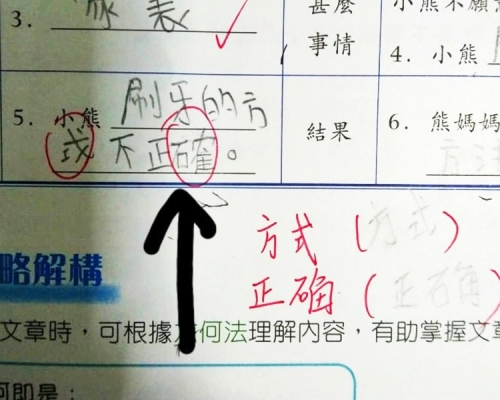 3. 家表
甚麼
事情
小熊不願
4. 小熊
5. 小熊 刷牙的方
不正確。
結果
6. 熊媽媽
方法
方式（方式）
正确（正确）
略解構
文章時，可根據何法理解內容，有助掌握文章
何即是：